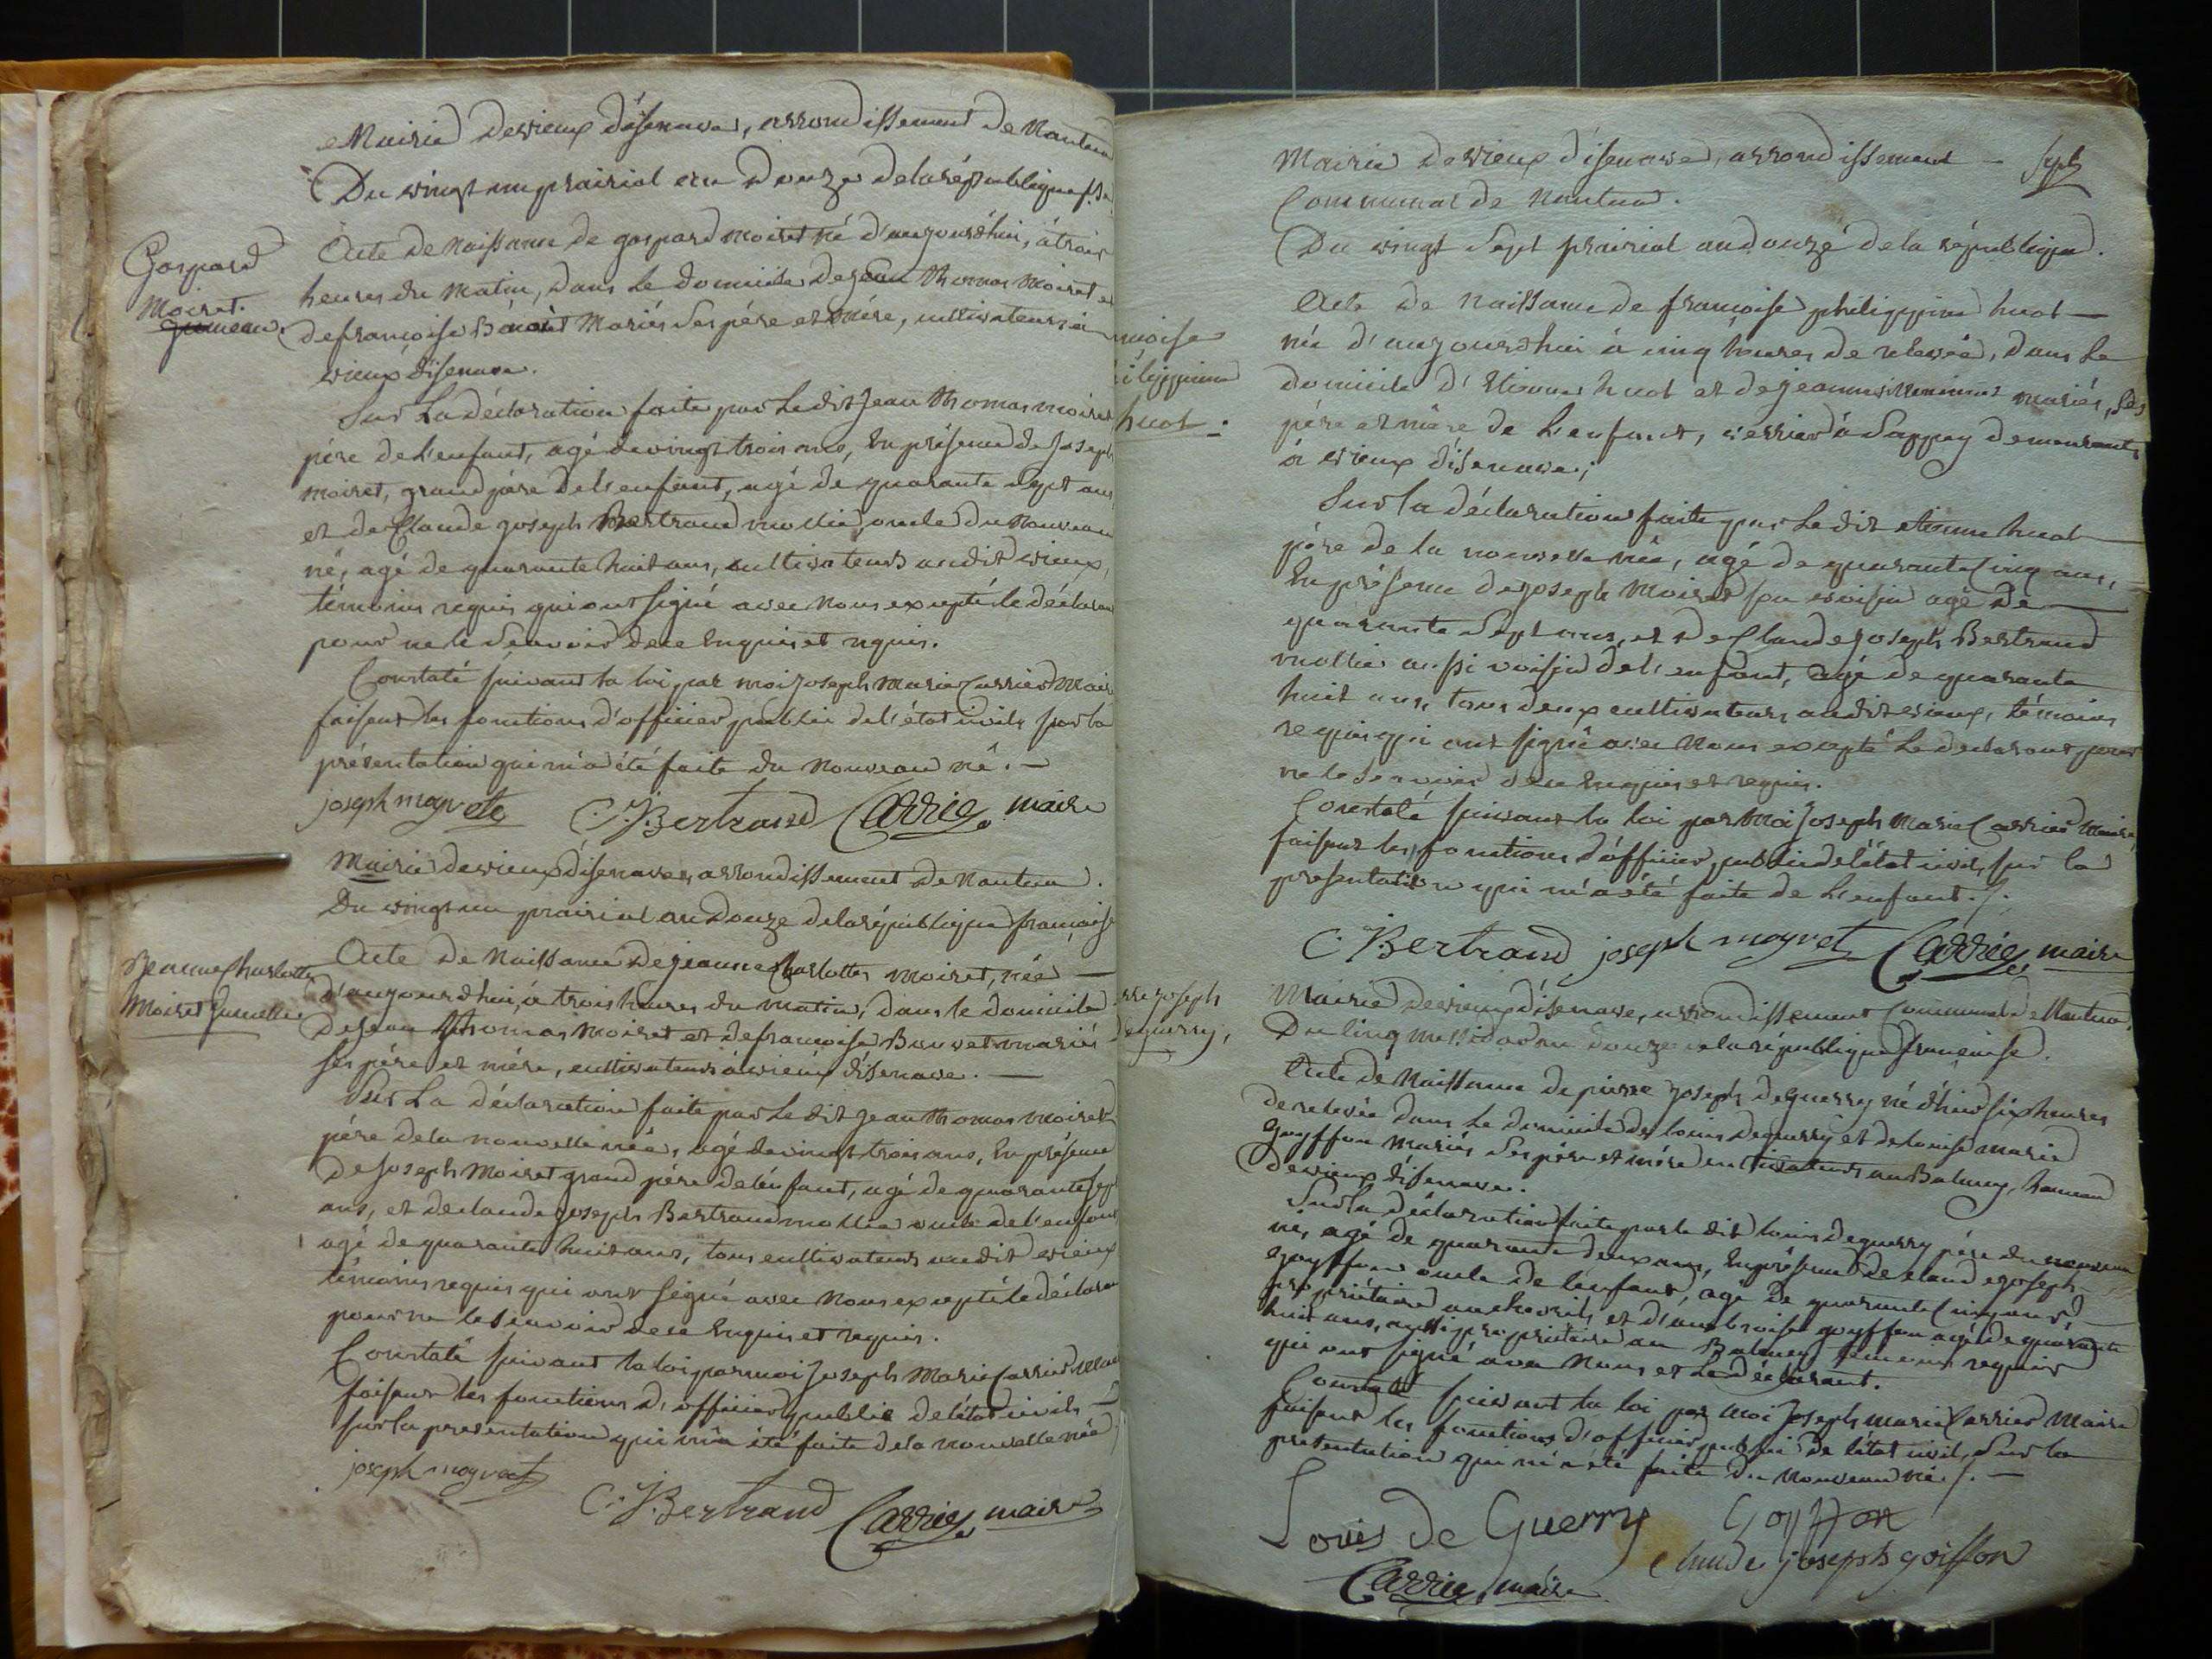 Mairie de vieux d'isenave, arrondissement de Nantua
Du vingt un prairial an douze de la république f.se
Gaspard
Moiret
Jumeau.
Acte de Naissance de gaspard moiret né d'aujourd'hui, à trois
heures du matin, dans le domicile de jean thomas Moiret et
de françoise Bouvet Mariés ses père et mère, cultivateurs à
vieux d'isenave.
Sur La déclaration faite par Le dit Jean thomas moiret
père de l'enfant, agé de vingt trois ans, En présence de Joseph
moiret, grand père de l'enfant, agé de quarante sept ans
et de Claude joseph Bertrand mollie, oncle du Nouveau
né, agé de quarante huit ans, cultivateurs audit vieux,
témoins requis qui ont signé avec Nous excepté le déclarant
pour ne le scavoir de ce Enquis et requis.
Constaté suivant la loi par moi joseph marie Carrier Maire
faisant les fonctions d'officier public de l'état civil, sur la
présentation qui m'a été faite du Nouveau né. —
joseph moyret C. J. Bertrand Carrier maire
Mairie de vieux d'isenave, arrondissement de Nantua.
Du vingt un prairial an douze de la république française
Jeanne Charlotte
Moiret Jumelle.
Acte de Naissance de jeanne Charlotte moiret, née —
d'aujourd'hui, à trois heures du matin, dans le domicile
de jean thomas Moiret et de françoise Bouvet mariés
ses père et mére, cultivateurs à vieux d'isenave. —
Sur La déclaration faite par Le dit Jean thomas moiret
père de la nouvelle née, agé de vingt trois ans, En présence
de Joseph Moiret grand père de l'enfant, agé de quarante sept
ans, et de claude joseph Bertrand mollie oncle de l'enfant
agé de quarante huit ans, tous cultivateurs audit vieux
témoins requis qui ont signé avec Nous excepté le déclarant
pour ne le scavoir de ce Enquis et requis.
Constaté suivant la loi par moi Joseph Marie Carrier Maire
faisant les fonctions d'officier public de l'état civil, —
sur la presentation qui m'a été faite de la nouvelle née
joseph moyret
C. J. Bertrand Carrier maire
Mairie de vieux d'isenave, arrondissement — sept
Communal de Nantua.
Du vingt sept prairial an douze de la république.
Acte de Naissance de françoise philippine huot —
née d'aujourd'hui à cinq heures de relevée, dans Le
domicile d'Etienne huot et de jeanne mariés, ses
père et mére de L'enfant, verrier à Sappey demeurants
à vieux d'isenave;
nçoise
ilippine
huot.
Sur la déclaration faite par Le dit etienne huot
père de la nouvelle née, agé de quarante cinq ans,
En présence de joseph Moiret son voisin agé de —
quarante sept ans, et de Claude joseph Bertrand
mollie aussi voisin de l'enfant, agé de quarante
huit ans, tous deux cultivateurs audit vieux, témoins
requis qui ont signé avec Nous excepté Le declarant pour
ne le scavoir de ce Enquis et requis.
Constaté suivant la loi par Moi Joseph Marie Carrier Maire,
faisant les fonctions d'officier public de l'état civil, sur la
presentation qui m'a été faite de L'enfant./.
C. J. Bertrand joseph moyret Carrier maire
Mairie de vieux d'isenave, arrondissement Communal de Nantua.
Du Cinq messidor an douze de la république française.
rre joseph
deguerry,
Acte de Naissance de pierre joseph deguerry né d'hier six heures
de relevée dans Le domicile de louis deguerry et de louise marie
goyffon mariés ses père et mére cultivateurs au Balmey, hameau
de vieux d'isenave.
Sur la déclaration faite par le dit louis deguerry père du nouveau
né, agé de quarante deux ans, En présence de claude joseph
goyffon oncle de l'enfant, agé de quarante cinq ans,
propriétaire au et d'ambroise goyffon agé de quarante
huit ans, aussi propriétaire au Balmey temoins requis
qui ont signé avec Nous et Le déclarant.
Constaté suivant la loi par moi Joseph marie Carrier Maire
faisant les fonctions d'officier public de l'état civil, sur la
presentation qui m'a été faite du nouveau né./. —
Louis de Guerry Goyffon
claude joseph goiffon
Carrier maire